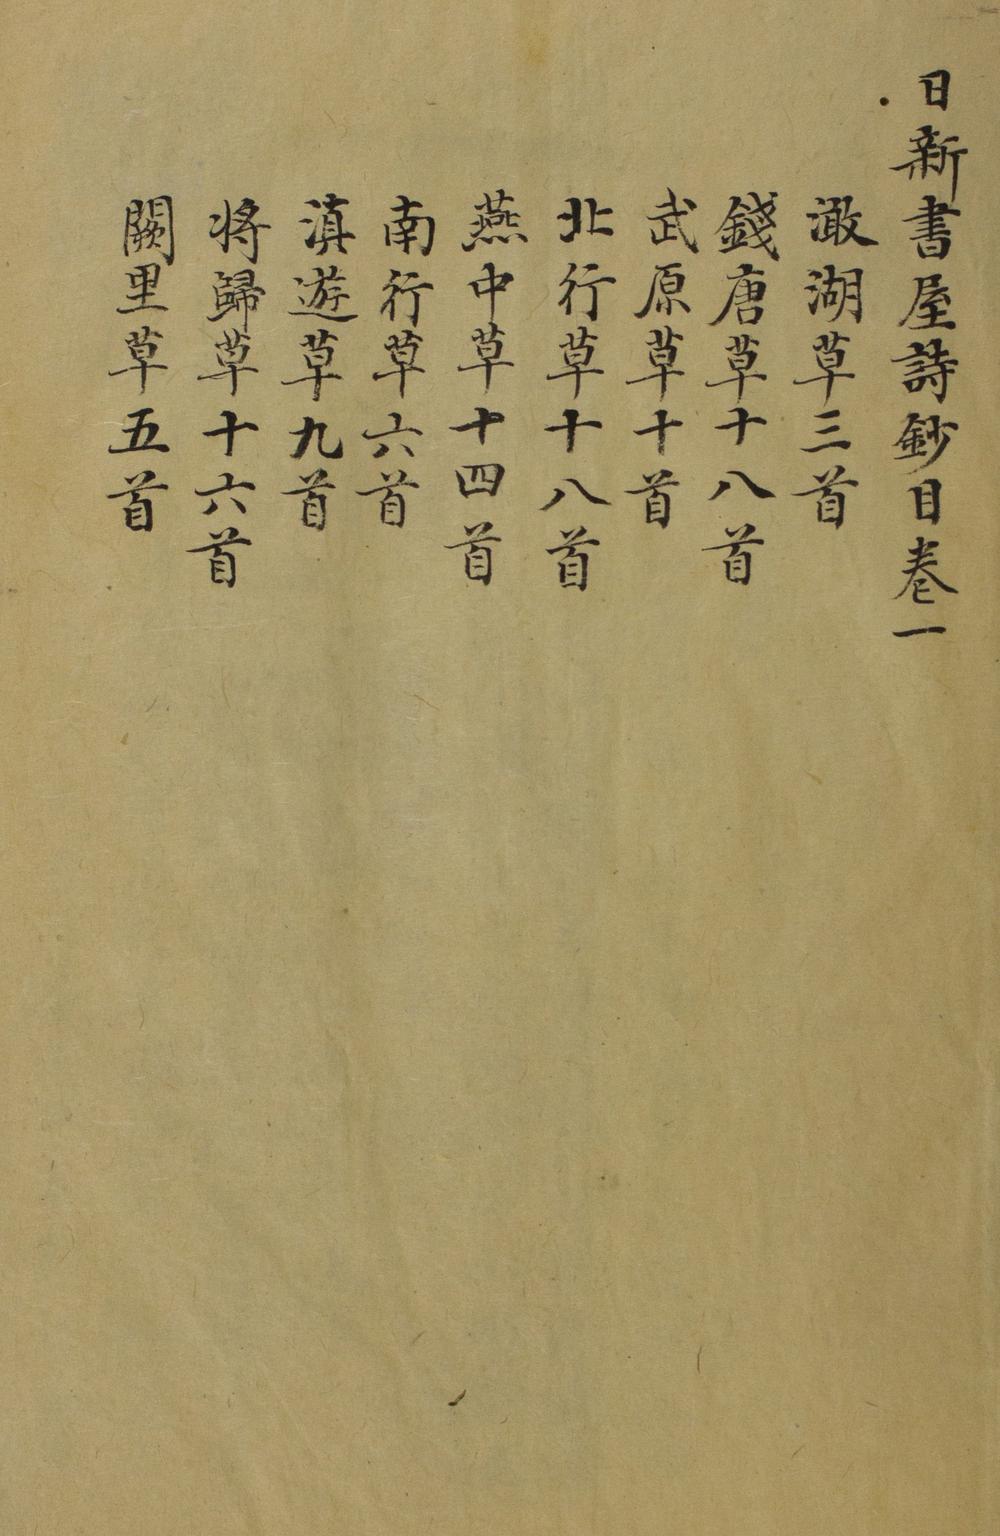 日新書屋詩鈔目卷一
澉湖草三首
錢唐草十八首
武原草十首
北行草十八首
燕中草十四首
南行草六首
滇遊草九首
將歸草十六首
闕里草五首